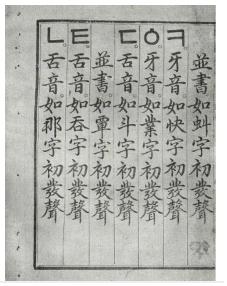 並書。如虯字初發聲
ㅋ。牙音。如快字初發聲
ㆁ。牙音。如業字初發聲
ㄷ。舌音。如斗字初發聲
並書。如覃字初發聲
ㅌ。舌音。如吞字初發聲
ㄴ。舌音。如那字初發聲